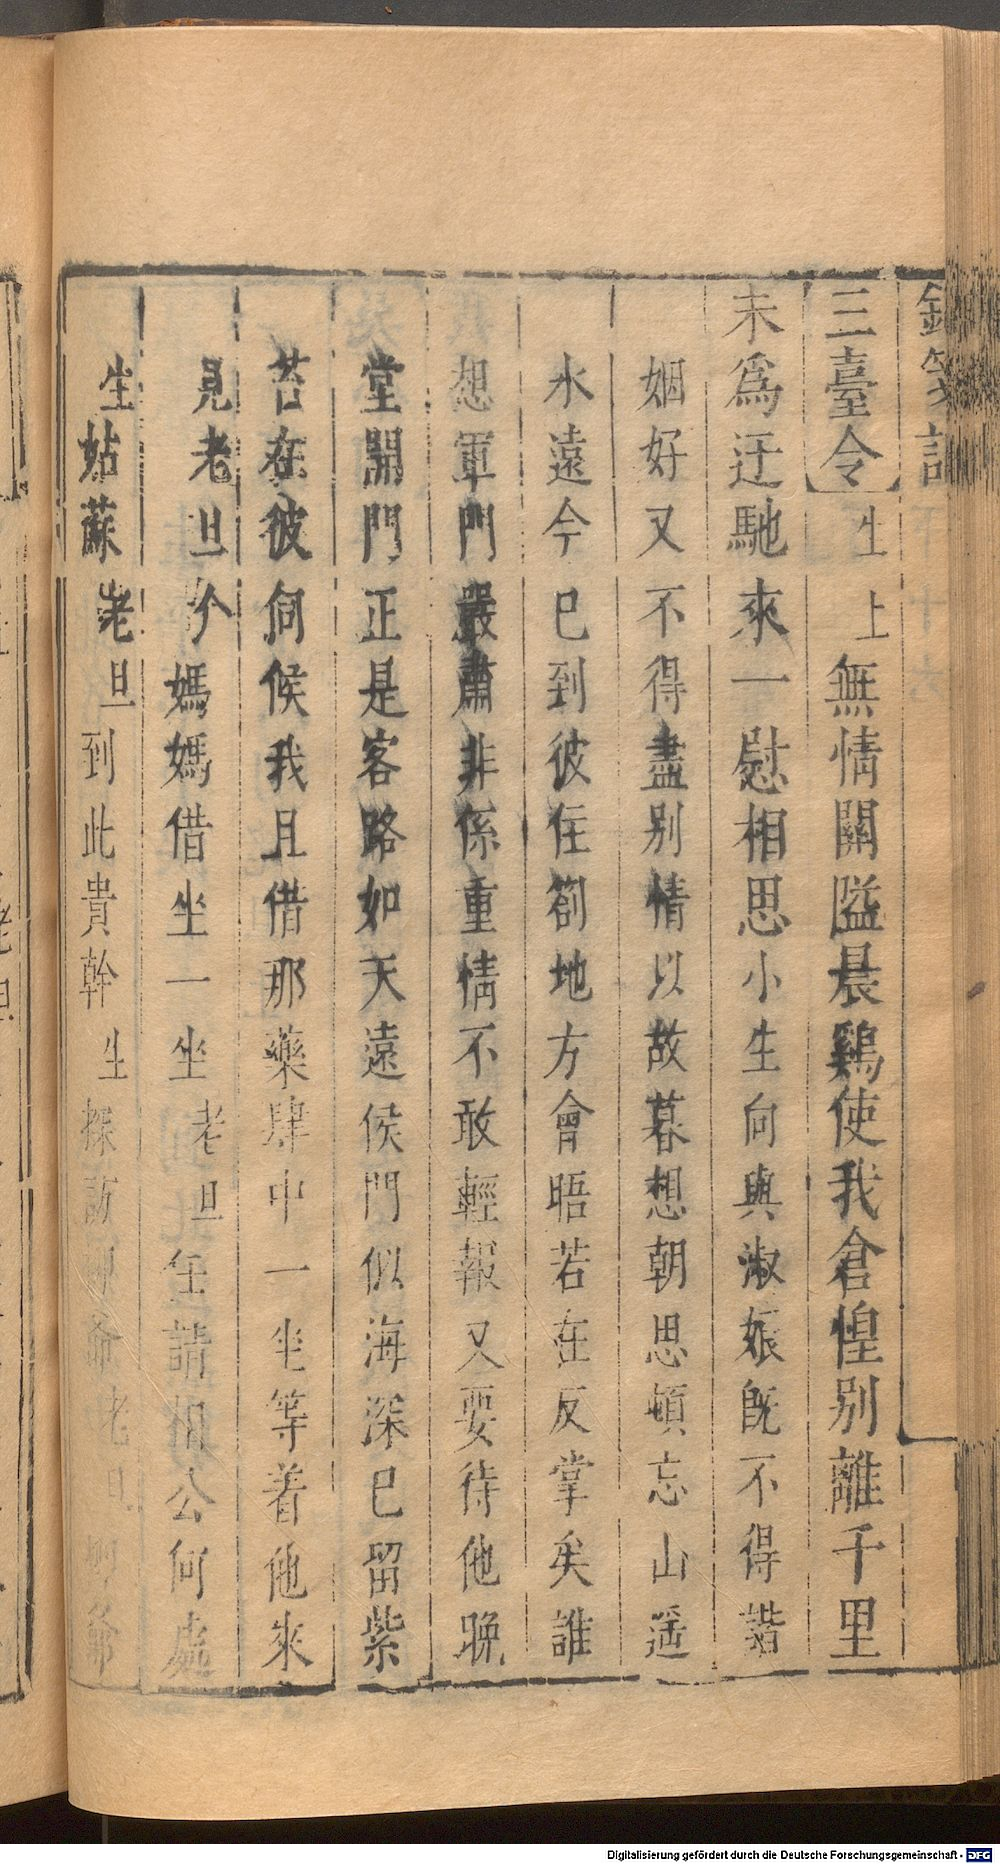 三臺令 生上 無情關隘晨鷄使我倉惶別離千里
未爲迂馳來一慰相思小生向與淑娘旣不得諧
姻好又不得盡別情以故暮想朝思頓忘山遥
水遠今已到彼住劄地方會晤若在反掌矣誰
想軍門嚴肅非係重情不敢輕報又要待他晚
堂開門正是客路如天遠侯門似海深已留紫
苔在彼伺候我且借那藥肆中一坐等着他來
見老旦介媽媽借坐一坐老旦任請 公何處
生姑蘇老旦到此貴幹生探訪 爺老旦 爺
Digitalisierung gefördert durch die Deutsche Forschungsgemeinschaft - DFG